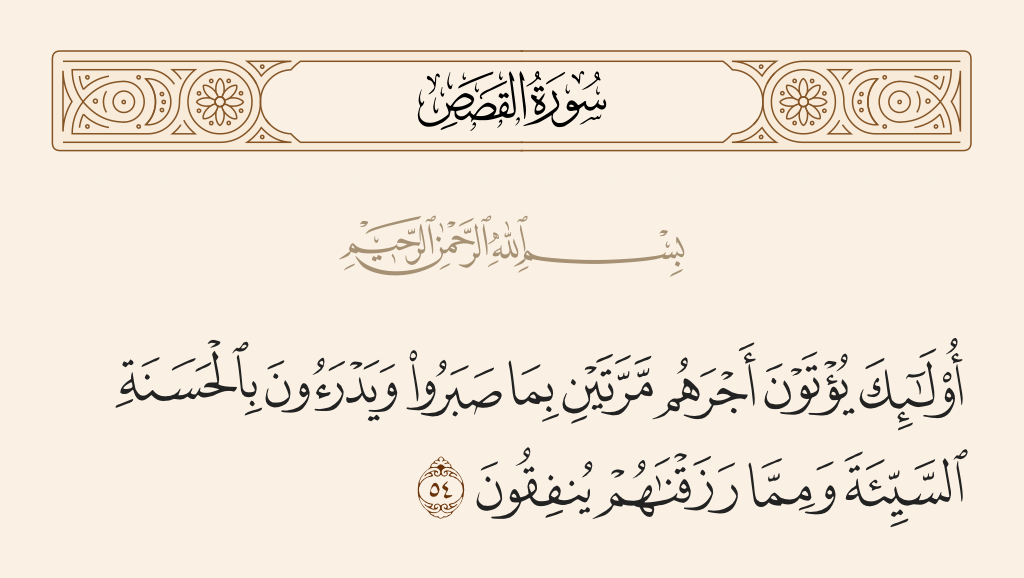 سُورَةُ القَصَصِ
بِسْمِ ٱللَّهِ ٱلرَّحْمَٰنِ ٱلرَّحِيمِ
أُو۟لَـٰٓئِكَ يُؤْتَوْنَ أَجْرَهُم مَّرَّتَيْنِ بِمَا صَبَرُوا۟ وَيَدْرَءُونَ بِٱلْحَسَنَةِ
ٱلسَّيِّئَةَ وَمِمَّا رَزَقْنَـٰهُمْ يُنفِقُونَ ٥٤